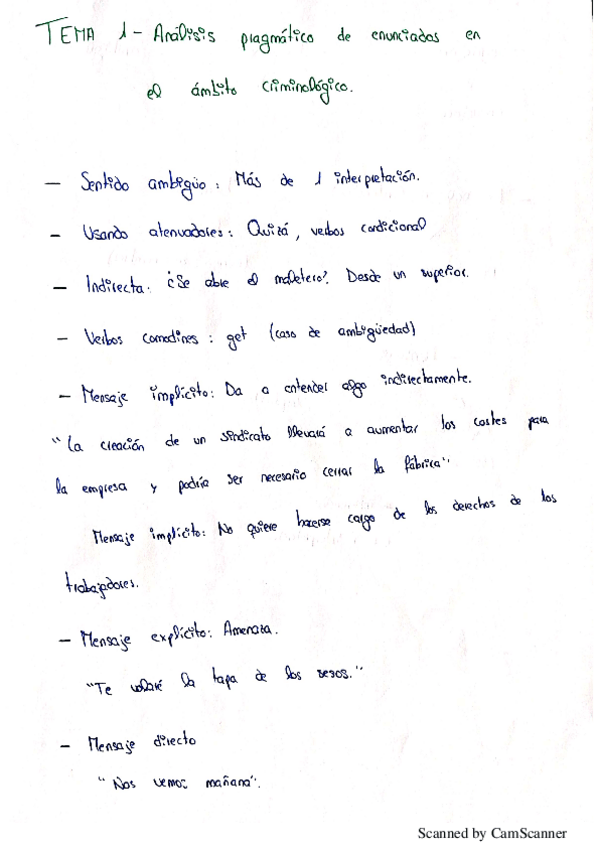 TEMA 1 - Análisis pragmático de enunciados en
el ámbito criminológico.
— Sentido ambigüo : Más de 1 interpretación.
— Usando atenuadores : Quizá, verbos condicional
— Indirecta : ¿Se abre el maletero?. Desde un superior.
— Verbos comodines : get (caso de ambigüedad)
— Mensaje implícito: Da a entender algo indirectamente.
“La creación de un sindicato llevará a aumentar los costes para
la empresa y podría ser necesario cerrar la fábrica”
Mensaje implícito: No quiere hacerse cargo de los derechos de los
trabajadores.
— Mensaje explícito: Amenaza.
“Te volaré la tapa de los sesos.”
— Mensaje directo
“Nos vemos mañana”.
Scanned by CamScanner